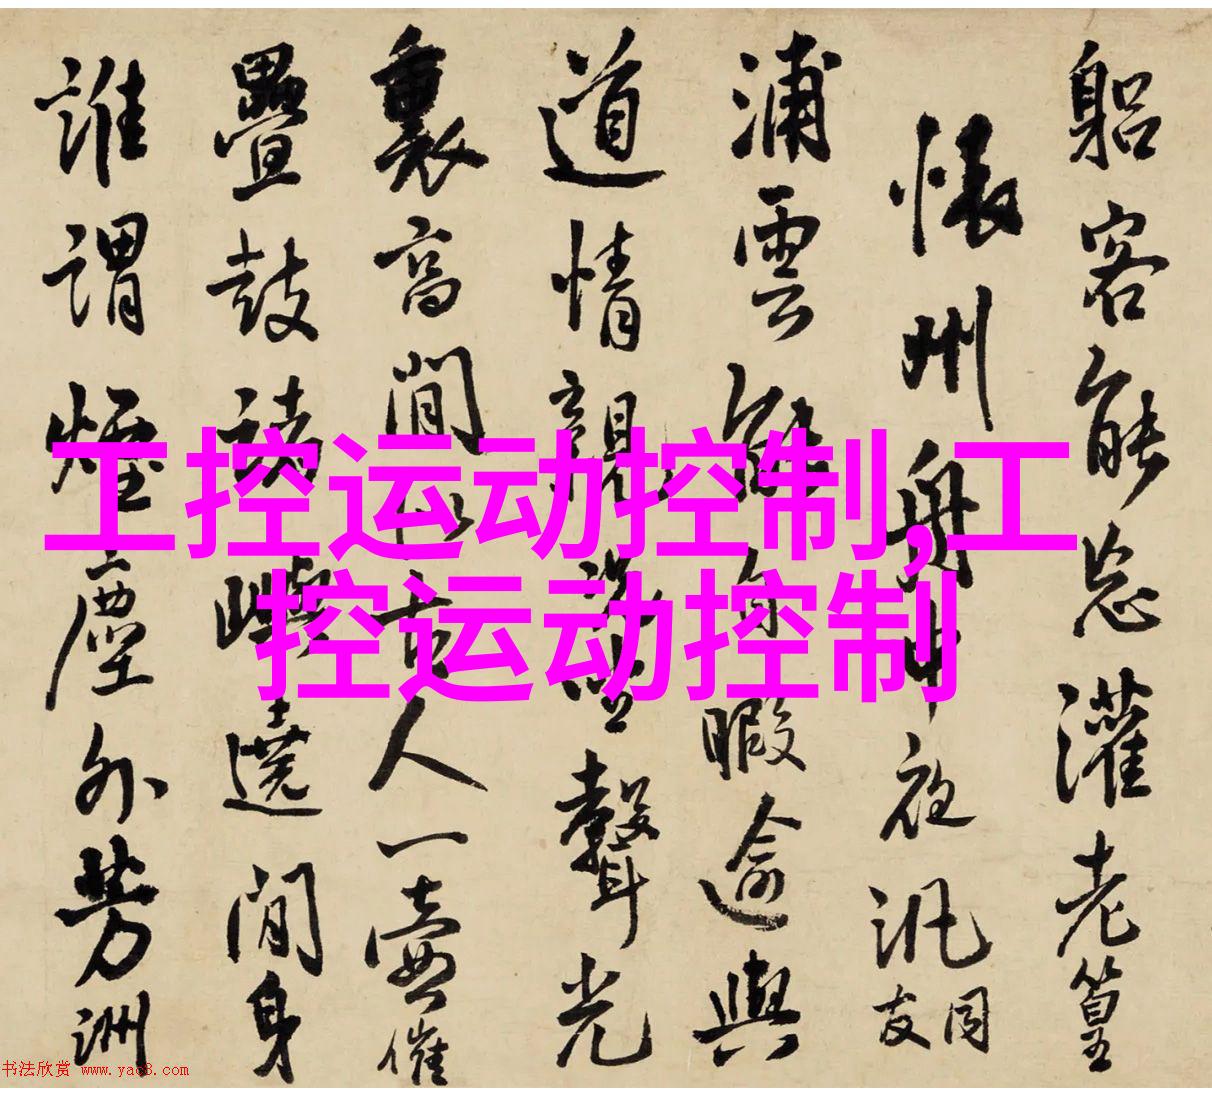 躳客能忘灌老篁
州舟中夜汎同友
浦雲暇逾與
道情親聲光
裏高閒古人一壷催
疊鼓嶼遶閒身
誰謂煙塵外芳洲
工控运动控制,工
控运动控制
书法欣赏 www.yac8.com